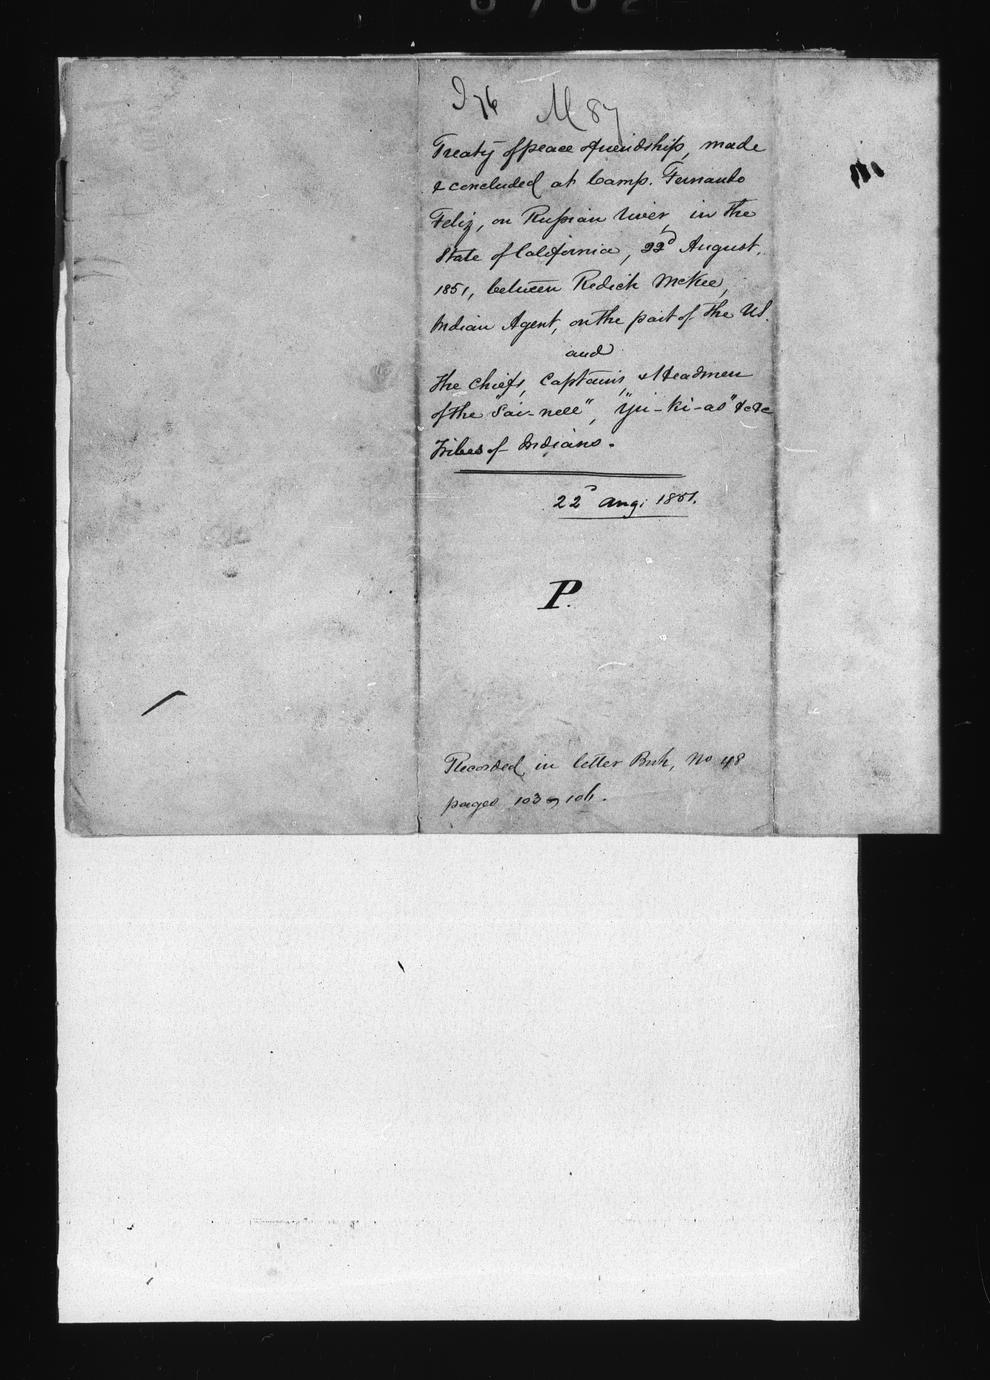 I 76 M 87
Treaty of peace & friendship, made
& concluded at Camp. Fernando
Feliz, on Russian river, in the
State of California, 22d August,
1851, between Redick McKee,
Indian Agent, on the part of the US.
and
The Chiefs, Captains, & Headmen
of the "Sai-nell", "Yu-ki-as" &c &c
Tribes of Indians.
22d Aug: 1851.
P.
Recorded in letter Book, No 48
pages 103 @ 106.